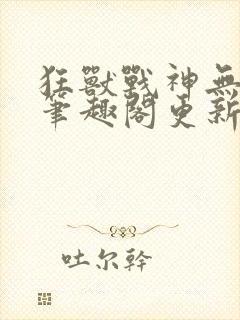 狂獸戰神無
筆趣閣更新
吐尔幹